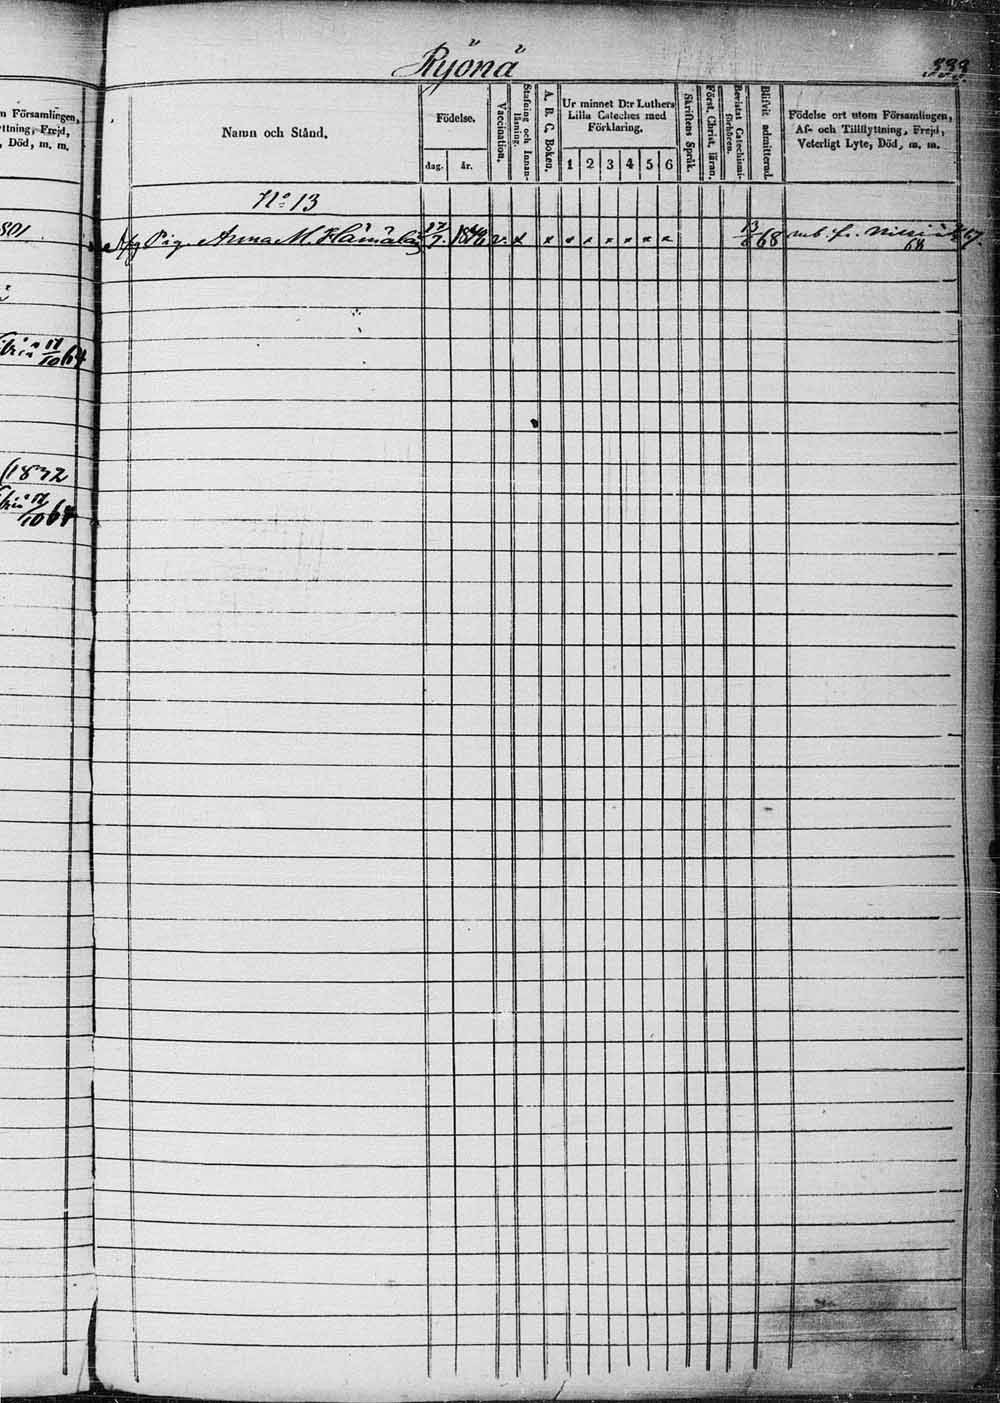 Ryönä
333.
m Församlingen,
yttning, Frejd,
, Död, m. m.
801
10 64
(1832
10 64
Namn och Stånd.
Födelse.
dag.
år.
Vaccination.
Stafning och Innan-
läsning.
A. B. C. Boken.
Ur minnet D:r Luthers
Lilla Cateches med
Förklaring.
1 2 3 4 5 6
Skriftens Språk.
Först. Christ. läran.
Bevistat Catechismi-
förhören.
Blifvit admitterad.
Födelse ort utom Församlingen,
Af- och Tillflyttning, Frejd,
Veterligt Lyte, Död, m. m.
No 13
Pig. Anna M. Hämäläi 27/7. v. x x x x x x x x 68
68